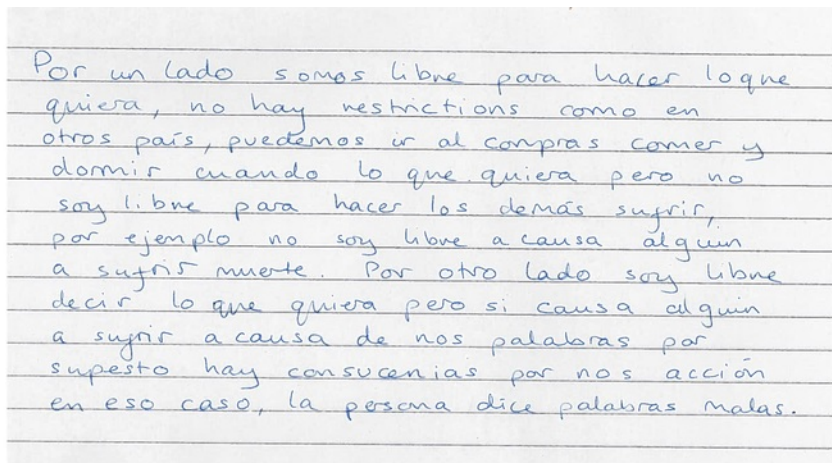 Por un lado somos libre para hacer loque
quiera, no hay restrictions como en
otros país, puedemos ir al compras comer y
dormir cuando lo que quiera pero no
soy libre para hacer los demás sufrir,
por ejemplo no soy libre a causa alguin
a sufrir muerte. Por otro lado soy libre
decir lo que quiera pero si causa alguin
a sufrir a causa de nos palabras por
supesto hay consucenias por nos acción
en eso caso, la persona dice palabras malas.